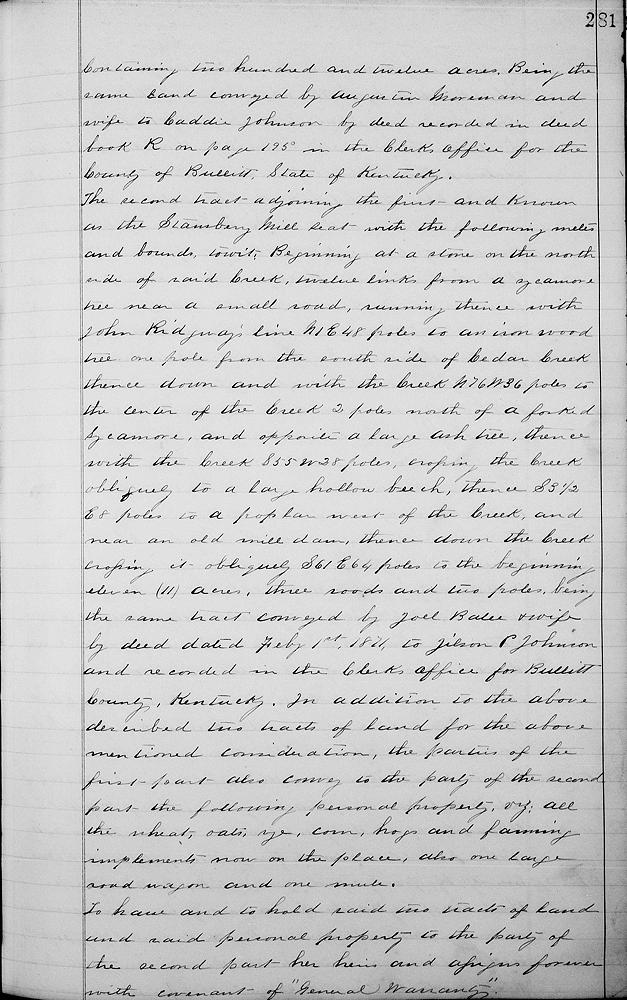 281
Containing two hundred and twelve acres. Being the
same Land conveyed by Augustin Moreman and
wife to Caddie Johnson by deed recorded in deed
book R on page 195 in the Clerks Office for the
County of Bullitt, State of Kentucky.
The second tract adjoining the first and Known
as the Stansbery Mill seat with the following metes
and bounds, towit; Beginning at a stone on the north
side of said Creek, twelve links from a sycamore
tree near a small road, running thence with
John Ridgway's line N1E48 poles to an iron wood
tree one pole from the south side of Cedar Creek
thence down and with the Creek N76W36 poles to
the center of the Creek 2 poles north of a forked
Sycamore, and opposite a large ash tree, thence
with the Creek S55W38 poles, crossing the Creek
obliquely to a large hollow beech, thence S3½
E8 poles to a poplar west of the Creek, and
near an old mill dam, thence down the Creek
crossing it obliquely S61E64 poles to the beginning
eleven (11) acres, three roods and two poles, being
the same tract conveyed by Joel Balee & wife
by deed dated Feby 1st, to Jilson P Johnson
and recorded in the Clerks office for Bullitt
County, Kentucky. In addition to the above
described two tracts of land for the above
mentioned consideration, the parties of the
first part also convey to the party of the second
part the following personal property, viz; all
the wheat, oats, rye, corn, hogs and farming
implements now on the place, also one large
road wagon and one mule.
To have and to hold said two tracts of land
and said personal property to the party of
the second part her heirs and assigns forever
with covenant of "General Warranty".